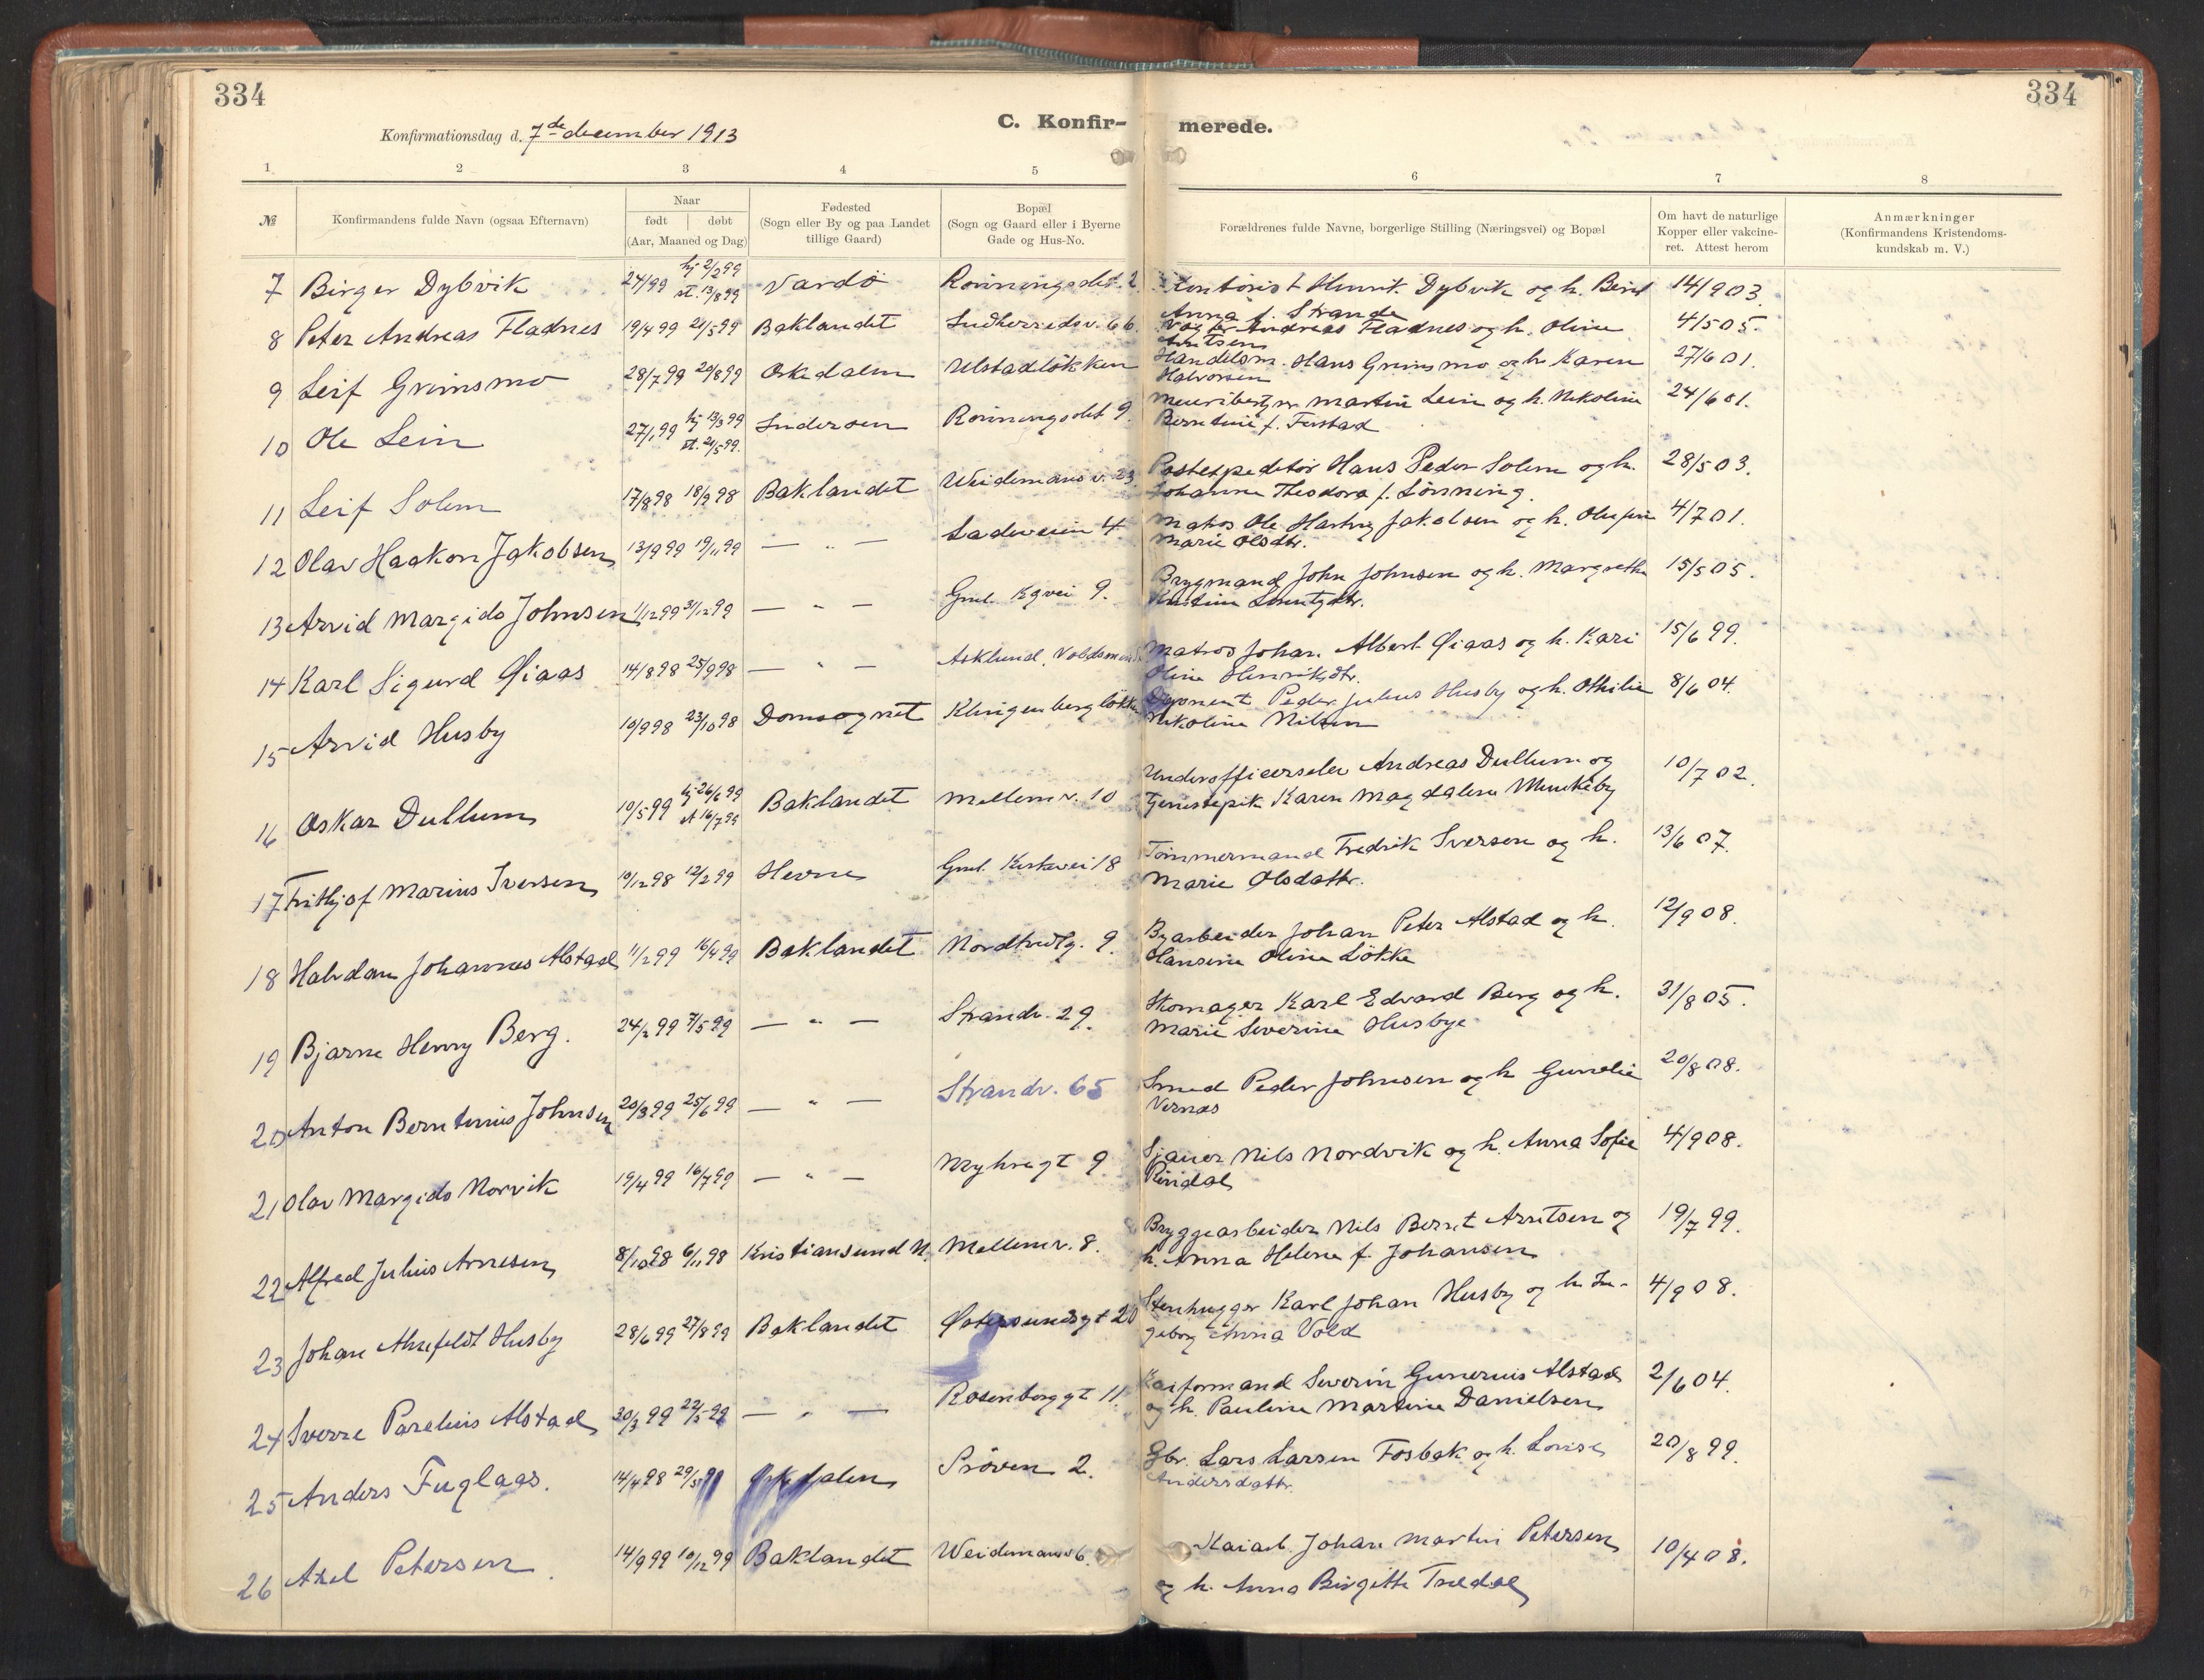 334
334
Konfirmationsdag d. 7de december 1913
C. Konfir-
merede.
1 2 3 4 5 6 7 8
№
Konfirmandens fulde Navn (ogsaa Efternavn)
Naar
født døbt
(Aar, Maaned og Dag)
Fødested
(Sogn eller By og paa Landet
tillige Gaard)
Bopæl
(Sogn og Gaard eller i Byerne
Gade og Hus-No.
Forældrenes fulde Navne, borgerlige Stilling (Næringsvei) og Bopæl
Om havt de naturlige
Kopper eller vakcine-
ret. Attest herom
Anmærkninger
(Konfirmandens Kristendoms-
kundskab m. V.)
7 Birger Dybvik 2/1 99 hj 2/2 99 st. 13/8 99 Vardö Rönningsslet. 2 Kontorist Henrik Dybvik og h. Beret 14/9 03.
Anna f. Strande
8 Peter Andreas Fladnes 19/4 99 21/5 99 Baklandet Indherredsv. 66 Andreas Fladnes og h. Oline 4/5 05.
Arntsen
9 Leif Grimsmo 28/7 99 20/8 99 Orkedalen Ulstadløkken Handelsm. Hans Grimsmo og h. Karen 27/6 01.
Halvorsen
10 Ole Lein 27/1 99 hj 13/3 99 st. 21/5 99. Inderøen Rönningsslet 9. Meieribestyrer Martin Lein og h. Nikoline 24/6 01.
Berntine f. Finstad
11 Leif Solem 17/8 98 18/9 98 Baklandet Weidemans v. 23. Postexpeditør Hans Peder Solem og h. 28/5 03.
Johanna Theodora f. Lönning.
12 Olav Haakon Jakobsen 13/9 99 19/11 99 — " — Ladeveien 4. Matros Ole Hartvig Jakobsen og h. Olufine 4/7 01.
Marie Olsdtr.
13 Arvid Margido Johnsen 11/12 99 31/12 99 — " — Gml. Kgvei 9. Brygmand John Johnsen og h. Margrethe 15/5 05.
Kristine Lorntzdtr.
14 Karl Sigurd Öiaas 14/8 98 25/9 98 — " — Asklund, Voldsminde Matros Johan Albert Öiaas og h. Kari 15/6 99.
Oline Henriksdtr.
15 Arvid Husby 10/9 98 23/10 98 Domsognet Klingenbergløkken Disponent Peder Julius Husby og h. Othilie 8/6 04.
Nikoline Nilsen
16 Oskar Dullum 10/5 99 hj 26/6 99 st 16/7 99 Baklandet Mellemv. 10 Underofficerselev Andreas Dullum og 10/7 02.
Tjenestepik Karen Magdalena Munkeby
17 Frithjof Marius Iversen 10/12 98 12/2 99 Hevne Gml. Kirkevei 18 Tömmermand Fredrik Iversen og h. 13/6 07.
Marie Olsdattr.
18 Halvdan Johannes Alstad 11/2 99 16/4 99 Baklandet Nordtvedtg. 9. Byarbeider Johan Peter Alstad og h. 12/9 08.
Hansine Oline Lökke
19 Bjarne Henry Berg. 24/2 99 7/5 99 — " — Strandv. 29. Skomager Karl Edvard Berg og h. 31/8 05.
Marie Severine Husbye
20 Anton Berntinius Johnsen 20/3 99 25/6 99 — " — Strandv. 65 Smed Peder Johnsen og h Gunelie 20/8 08.
Vernæs
21 Olav Margido Norvik 19/4 99 16/7 99 — " — Myhregt 9 Sjauer Nils Nordvik og h. Anna Sofie 4/9 08.
Rindal
22 Alfred Julius Arnesen 8/10 98 6/11 98 Kristiansund N. Mellemv. 8. Bryggearbeider Nils Bernt Arntsen og 19/7 99.
h. Anna Helena f. Johansen
23 Johan Ahnfeldt Husby 28/6 99 27/8 99 Baklandet Østersundsgt 20 Stenhugger Karl Johan Husby og h. In- 4/9 08.
geborg Anna Vold
24 Sverre Parelius Alstad 30/3 99 22/5 99 — " — Rosenborggt 11. Kaiformand Severin Gunerius Alstad 2/6 04.
og h. Pauline Martine Danielsen
25 Anders Fuglaas. 14/4 98 29/5 Orkedalen Pröven 2. Gbr. Lars Larsen Fosbak og h. Lovise 20/8 99.
Andersdattr.
26 Axel Petersen. 14/9 99 10/12 99 Baklandet Weidemansv 6. Kaiarb. Johan Martin Petersen 10/4 08.
og h. Anna Birgitte Trædal